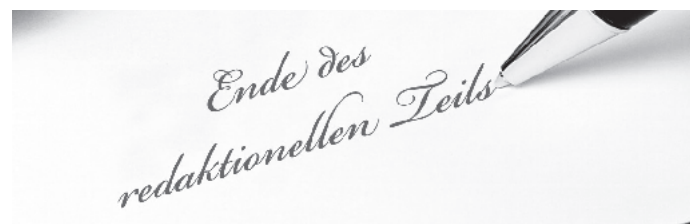 Ende des
redaktionellen Teils